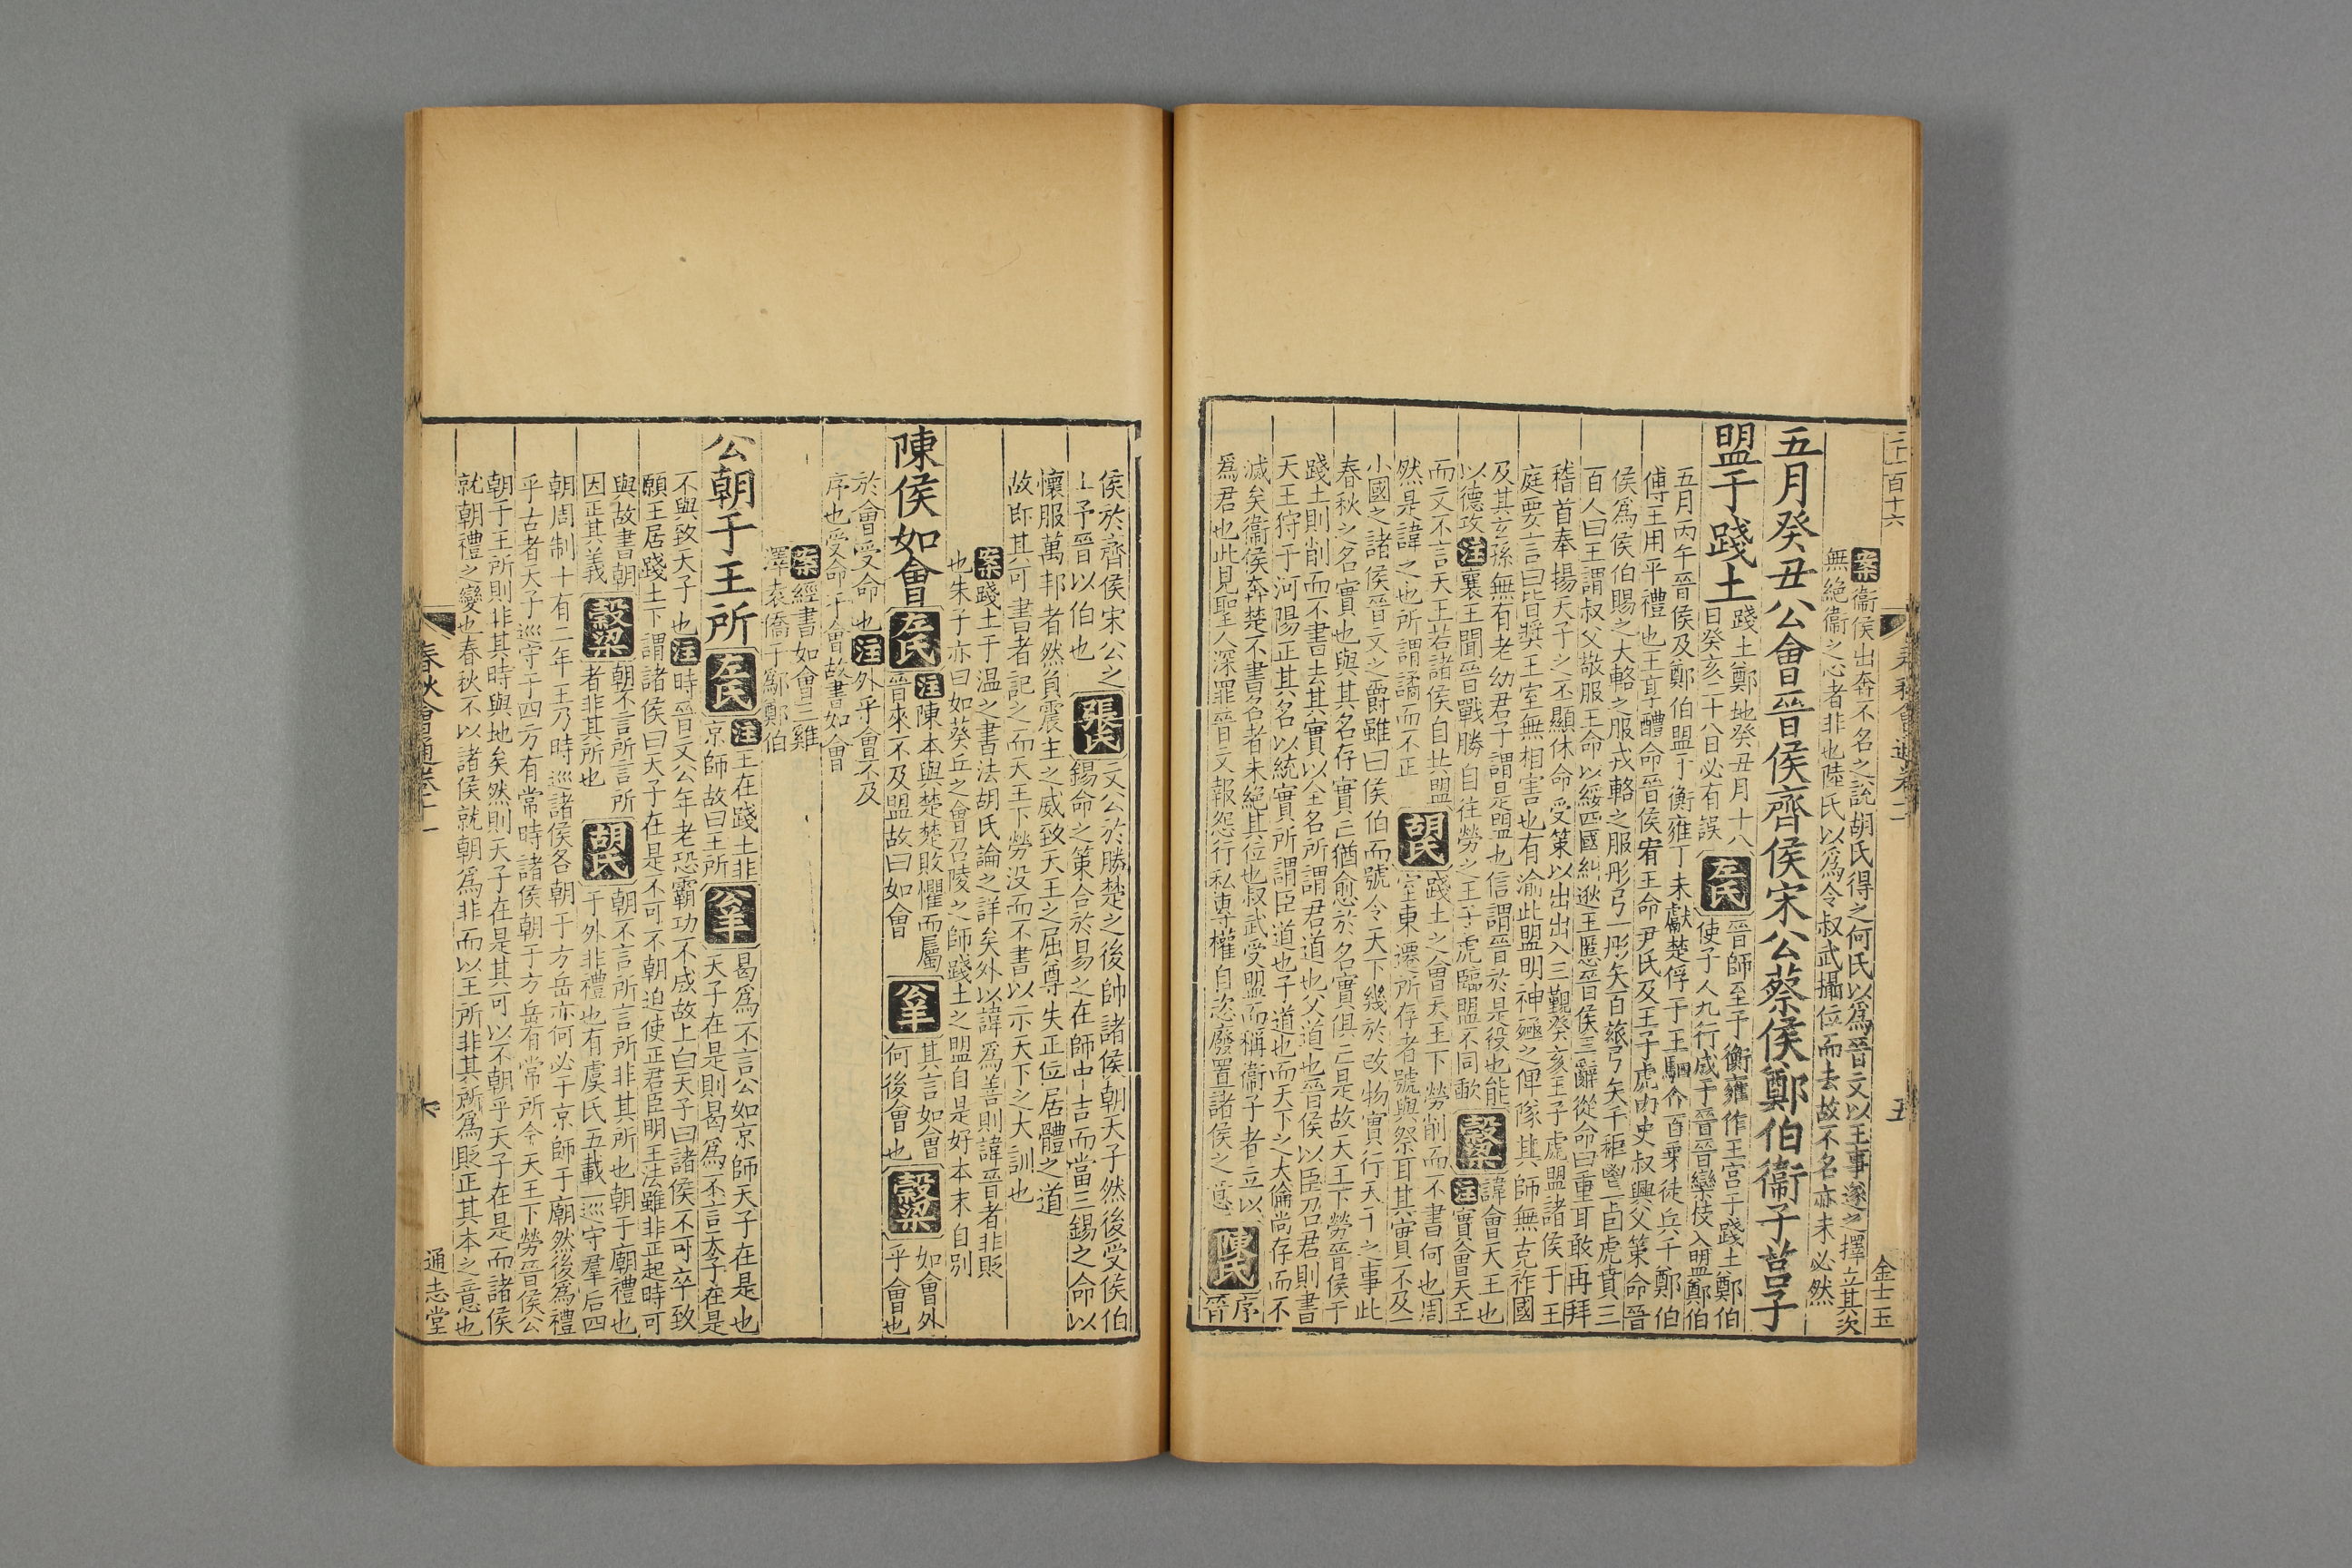 案衞侯出奔不名之說胡氏得之何氏以爲晉文以王事遂之擇立其次
無絶衞之心者非也陸氏以爲令叔武攝位而去故不名亦未必然
五月癸丑公會晉侯齊侯宋公蔡侯鄭伯衞子莒子
盟于踐土
踐土鄭地癸丑月十八
日癸亥二十八日必有誤
左氏
晉師至于衡雍作王宮于踐土鄭伯
使子人九行成于晉晉欒枝入盟鄭伯
五月丙午晉侯及鄭伯盟于衡雍丁未獻楚俘于王駟介百乘徒兵千鄭伯
傅王用平禮也王享醴命晉侯宥王命尹氏及王子虎內史叔興父策命晉
侯爲侯伯賜之大輅之服戎輅之服彤弓一彤矢百玈弓矢千秬鬯一卣虎賁三
百人曰王謂叔父敬服王命以綏四國糾逖王慝晉侯三辭從命曰重耳敢再拜
稽首奉揚天子之丕顯休命受策以出出入三覲癸亥王子虎盟諸侯于王
庭要言曰皆奬王室無相害也有渝此盟明神殛之俾隊其師無克祚國
及其玄孫無有老幼君子謂是盟也信謂晉於是役也能
以德攻注襄王聞晉戰勝自往勞之王子虎臨盟不同歃
穀梁
諱會天王也
注實會天王
而文不言天王若諸侯自共盟
然是諱之也所謂譎而不正
胡氏
踐土之會天王下勞削而不書何也周
室東遷所存者號與祭耳其實不及一
小國之諸侯晉文之爵雖曰侯伯而號令天下幾於改物實行天子之事此
春秋之名實也與其名存實亡猶愈於名實俱亡是故天王下勞晉侯于
踐土則削而不書去其實以全名所謂君道也父道也晉侯以臣召君則書
天王狩于河陽正其名以統實所謂臣道也子道也而天下之大倫尚存而不
滅矣衞侯奔楚不書名者未絶其位也叔武受盟而稱衞子者立以
爲君也此見聖人深罪晉文報怨行私專權自恣廢置諸侯之意
陳氏
序
晉
侯於齊侯宋公之
上予晉以伯也
張氏
文公於勝楚之後帥諸侯朝天子然後受侯伯
錫命之策合於易之在師中吉而當三錫之命以
懷服萬邦者然負震主之威致天王之屈尊失正位居體之道
故師其可書者記之而天王下勞没而不書以示天下之大訓也
案踐土于温之書法胡氏論之詳矣外以諱爲善則諱晉者非貶
也朱子亦曰如葵丘之會召陵之師踐土之盟自是好本末自別
陳侯如會
左氏
注陳本與楚楚敗懼而屬
晉來不及盟故曰如會
公羊
其言如會
何後會也
穀梁
如會外
乎會也
於會受命也注外乎會不及
序也受命于會故書如會
案經書如會二雞
澤袁僑于鄬鄭伯
公朝于王所
左氏
注王在踐土非
京師故曰王所
公羊
曷爲不言公如京師天子在是也
天子在是則曷爲不言天子在是
不與致天子也注時晉文公年老恐霸功不成故上白天子曰諸侯不可卒致
願王居踐土下謂諸侯曰天子在是不可不朝迫使正君臣明王法雖非正起時可
與故書朝
因正其義
穀梁
朝不言所言所
者非其所也
胡氏
朝不言所言所非其所也朝于廟禮也
于外非禮也有虞氏五載一巡守羣后四
朝周制十有二年王乃時巡諸侯各朝于方岳亦何必于京師于廟然後爲禮
乎古者天子巡守于四方有常時諸侯朝于方岳有常所今天王下勞晉侯公
朝于王所則非其時與地矣然則天子在是其可以不朝乎天子在是而諸侯
就朝禮之變也春秋不以諸侯就朝爲非而以王所非其所爲貶正其本之意也
春秋會通卷十一
六
通志堂